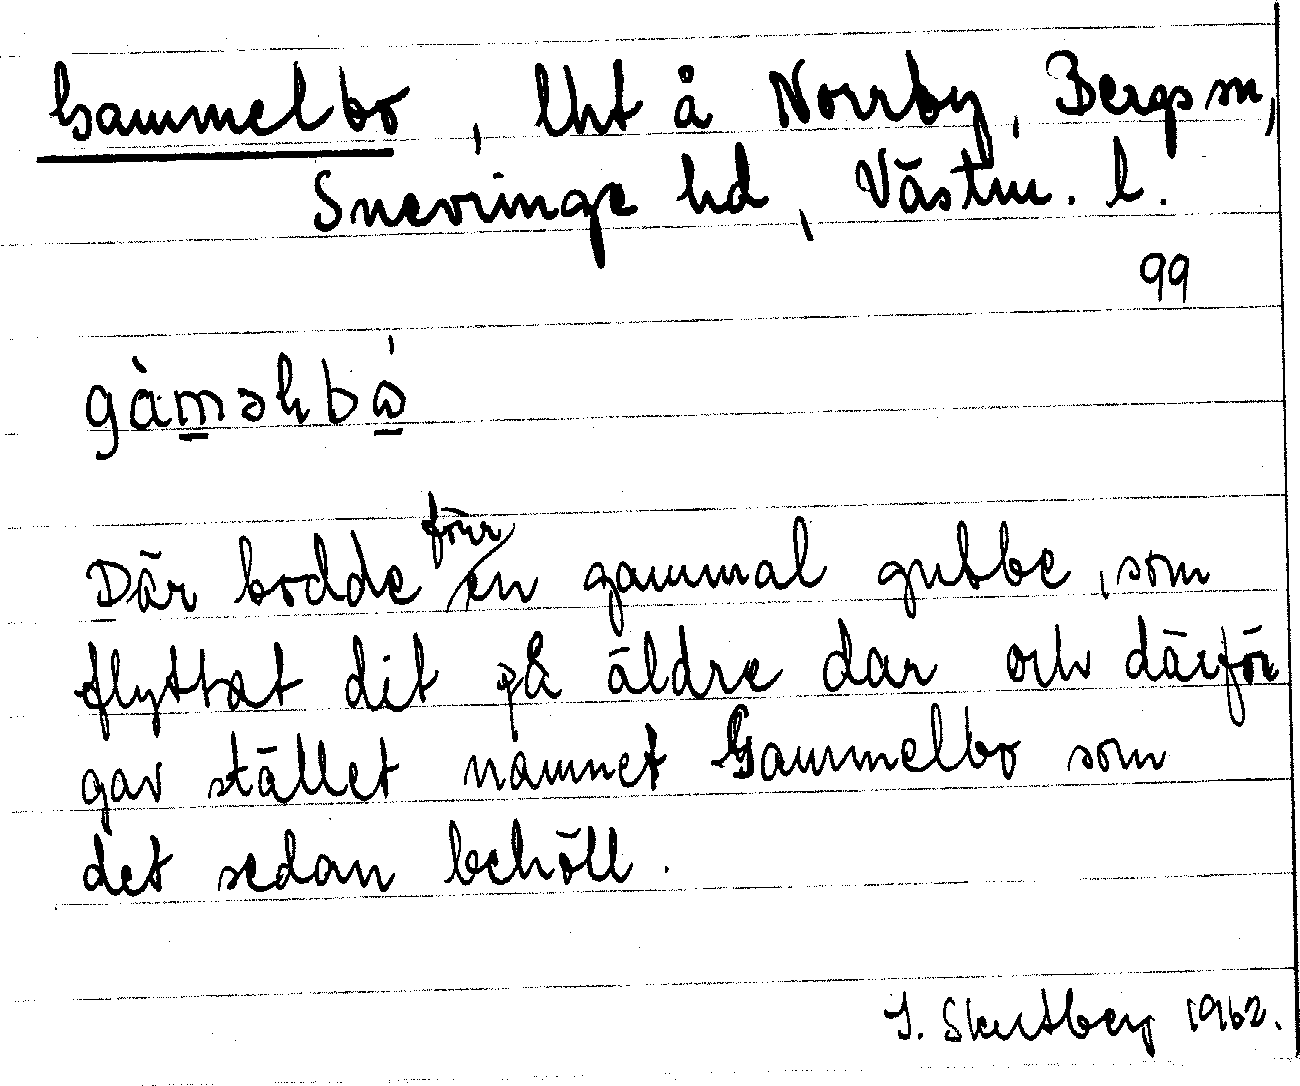 Gammelbo, lht å Norrby, Bergs sn,
Snevringe hd, Västm. l.
99
gàməlbω̇
Där bodde förr en gammal gubbe, som
flyttat dit på äldre dar och därför
gav stället namnet Gammelbo som
det sedan behöll.
1962.